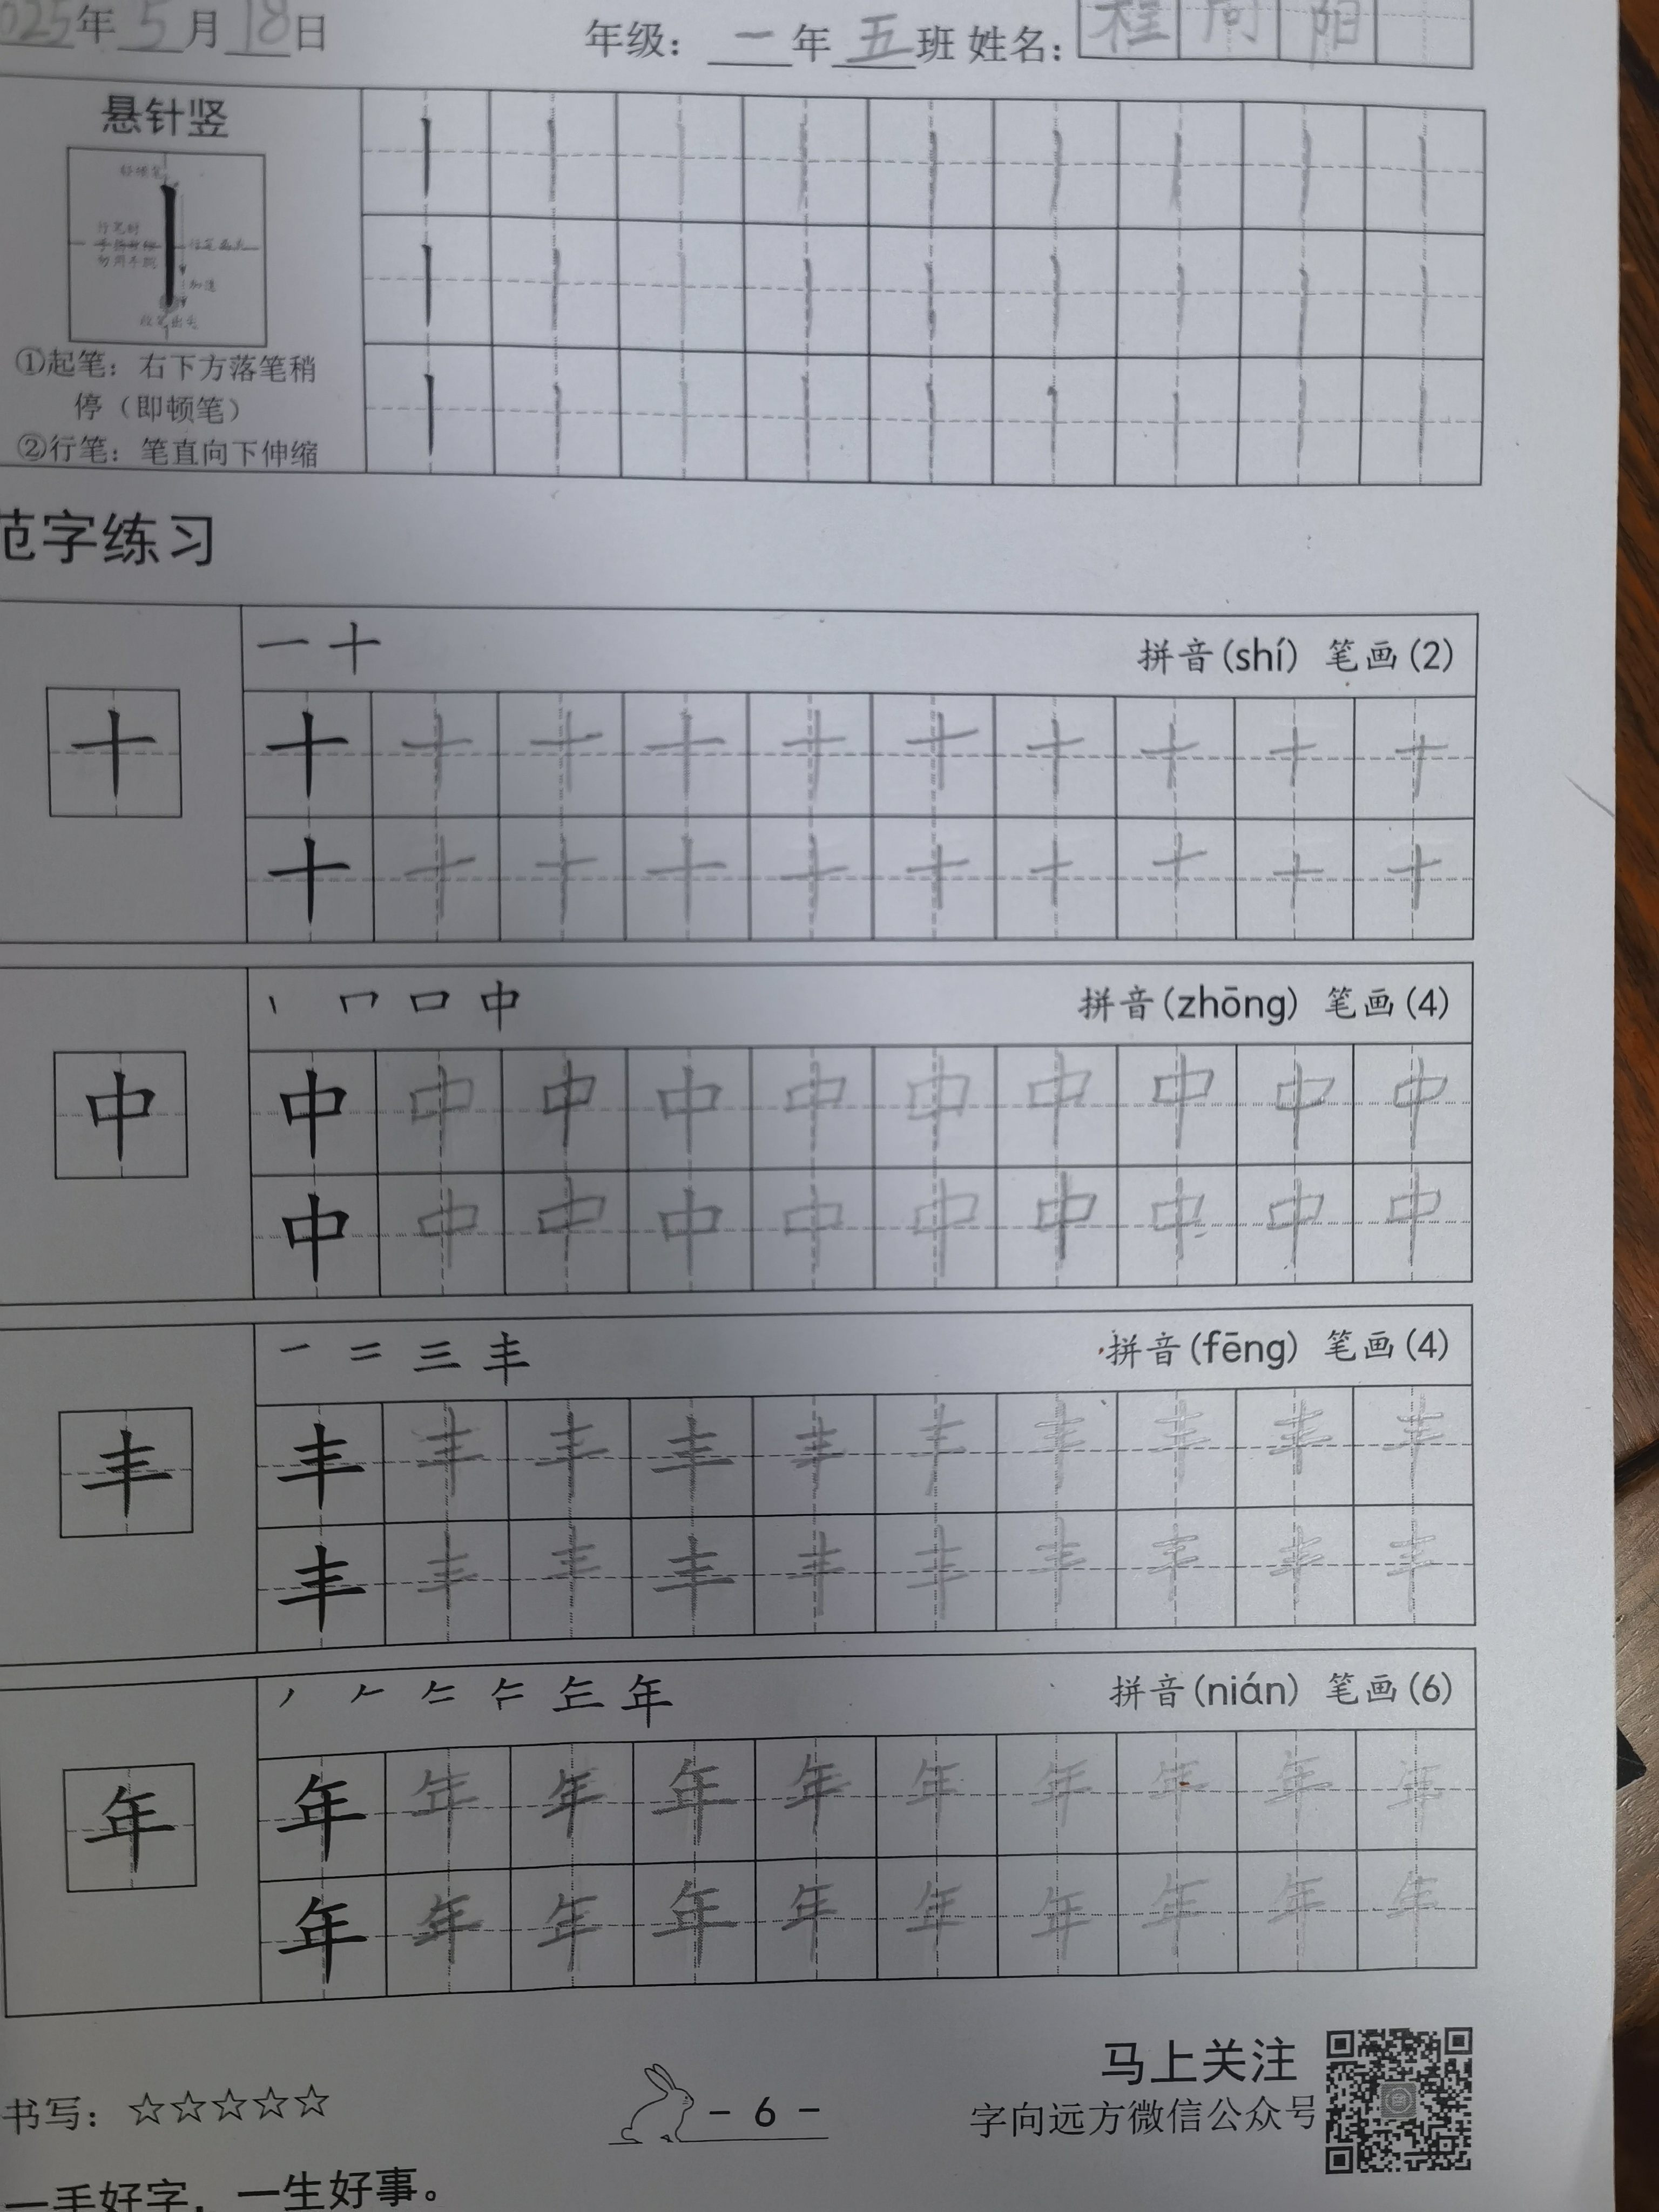 025年 5 月 18 日 年级： 一 年 五 班 姓名： 程 周 阳
悬针竖
轻顿笔
行笔时
手指伸缩
勿用手腕
①起笔：右下方落笔稍
停（即顿笔）
②行笔：笔直向下伸缩
范字练习
一 十 拼音(shí) 笔画(2)
十 十 十 十 十 十 十 十 十 十 十
十 十 十 十 十 十 十 十 十 十
丨 口 中 拼音(zhōng) 笔画(4)
中 中 中 中 中 中 中 中 中 中 中
中 中 中 中 中 中 中 中 中 中
一 二 三 丰 拼音(fēng) 笔画(4)
丰 丰 丰 丰 丰 丰 丰 丰 丰 丰 丰
丰 丰 丰 丰 丰 丰 丰 丰 丰 丰
年 拼音(nián) 笔画(6)
年 年 年 年 年 年 年 年 年 年 年
年 年 年 年 年 年 年 年 年 年
马上关注
书写：☆☆☆☆☆ - 6 - 字向远方微信公众号
一手好字，一生好事。